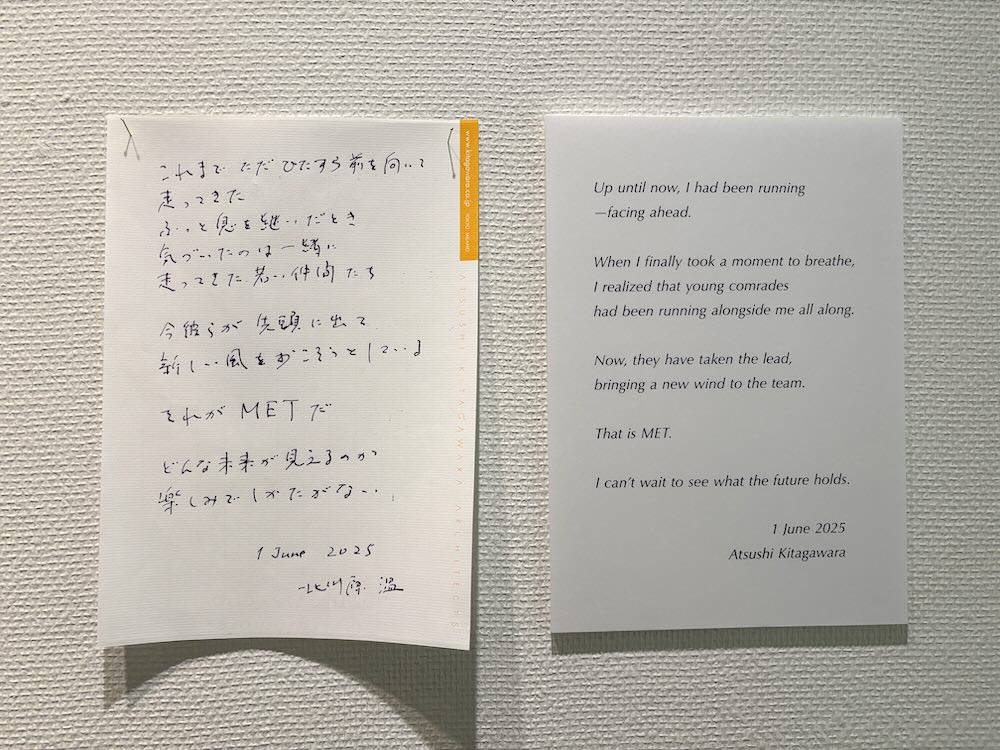 これまで ただ ひたすら 前を向いて
走ってきた
ふっと息を継いだとき
気づいたのは一緒に
走ってきた 若い仲間たち
今彼らが 先頭に出て
新しい風をおこそうとしている
それが MET だ
どんな未来が見えるのか
楽しみでしかたがない
1 June 2025
北川原 温
www.kitagawara.co.jp TOKYO
ATSUSHI KITAGAWARA ARCHITECTS
Up until now, I had been running
—facing ahead.
When I finally took a moment to breathe,
I realized that young comrades
had been running alongside me all along.
Now, they have taken the lead,
bringing a new wind to the team.
That is MET.
I can't wait to see what the future holds.
1 June 2025
Atsushi Kitagawara